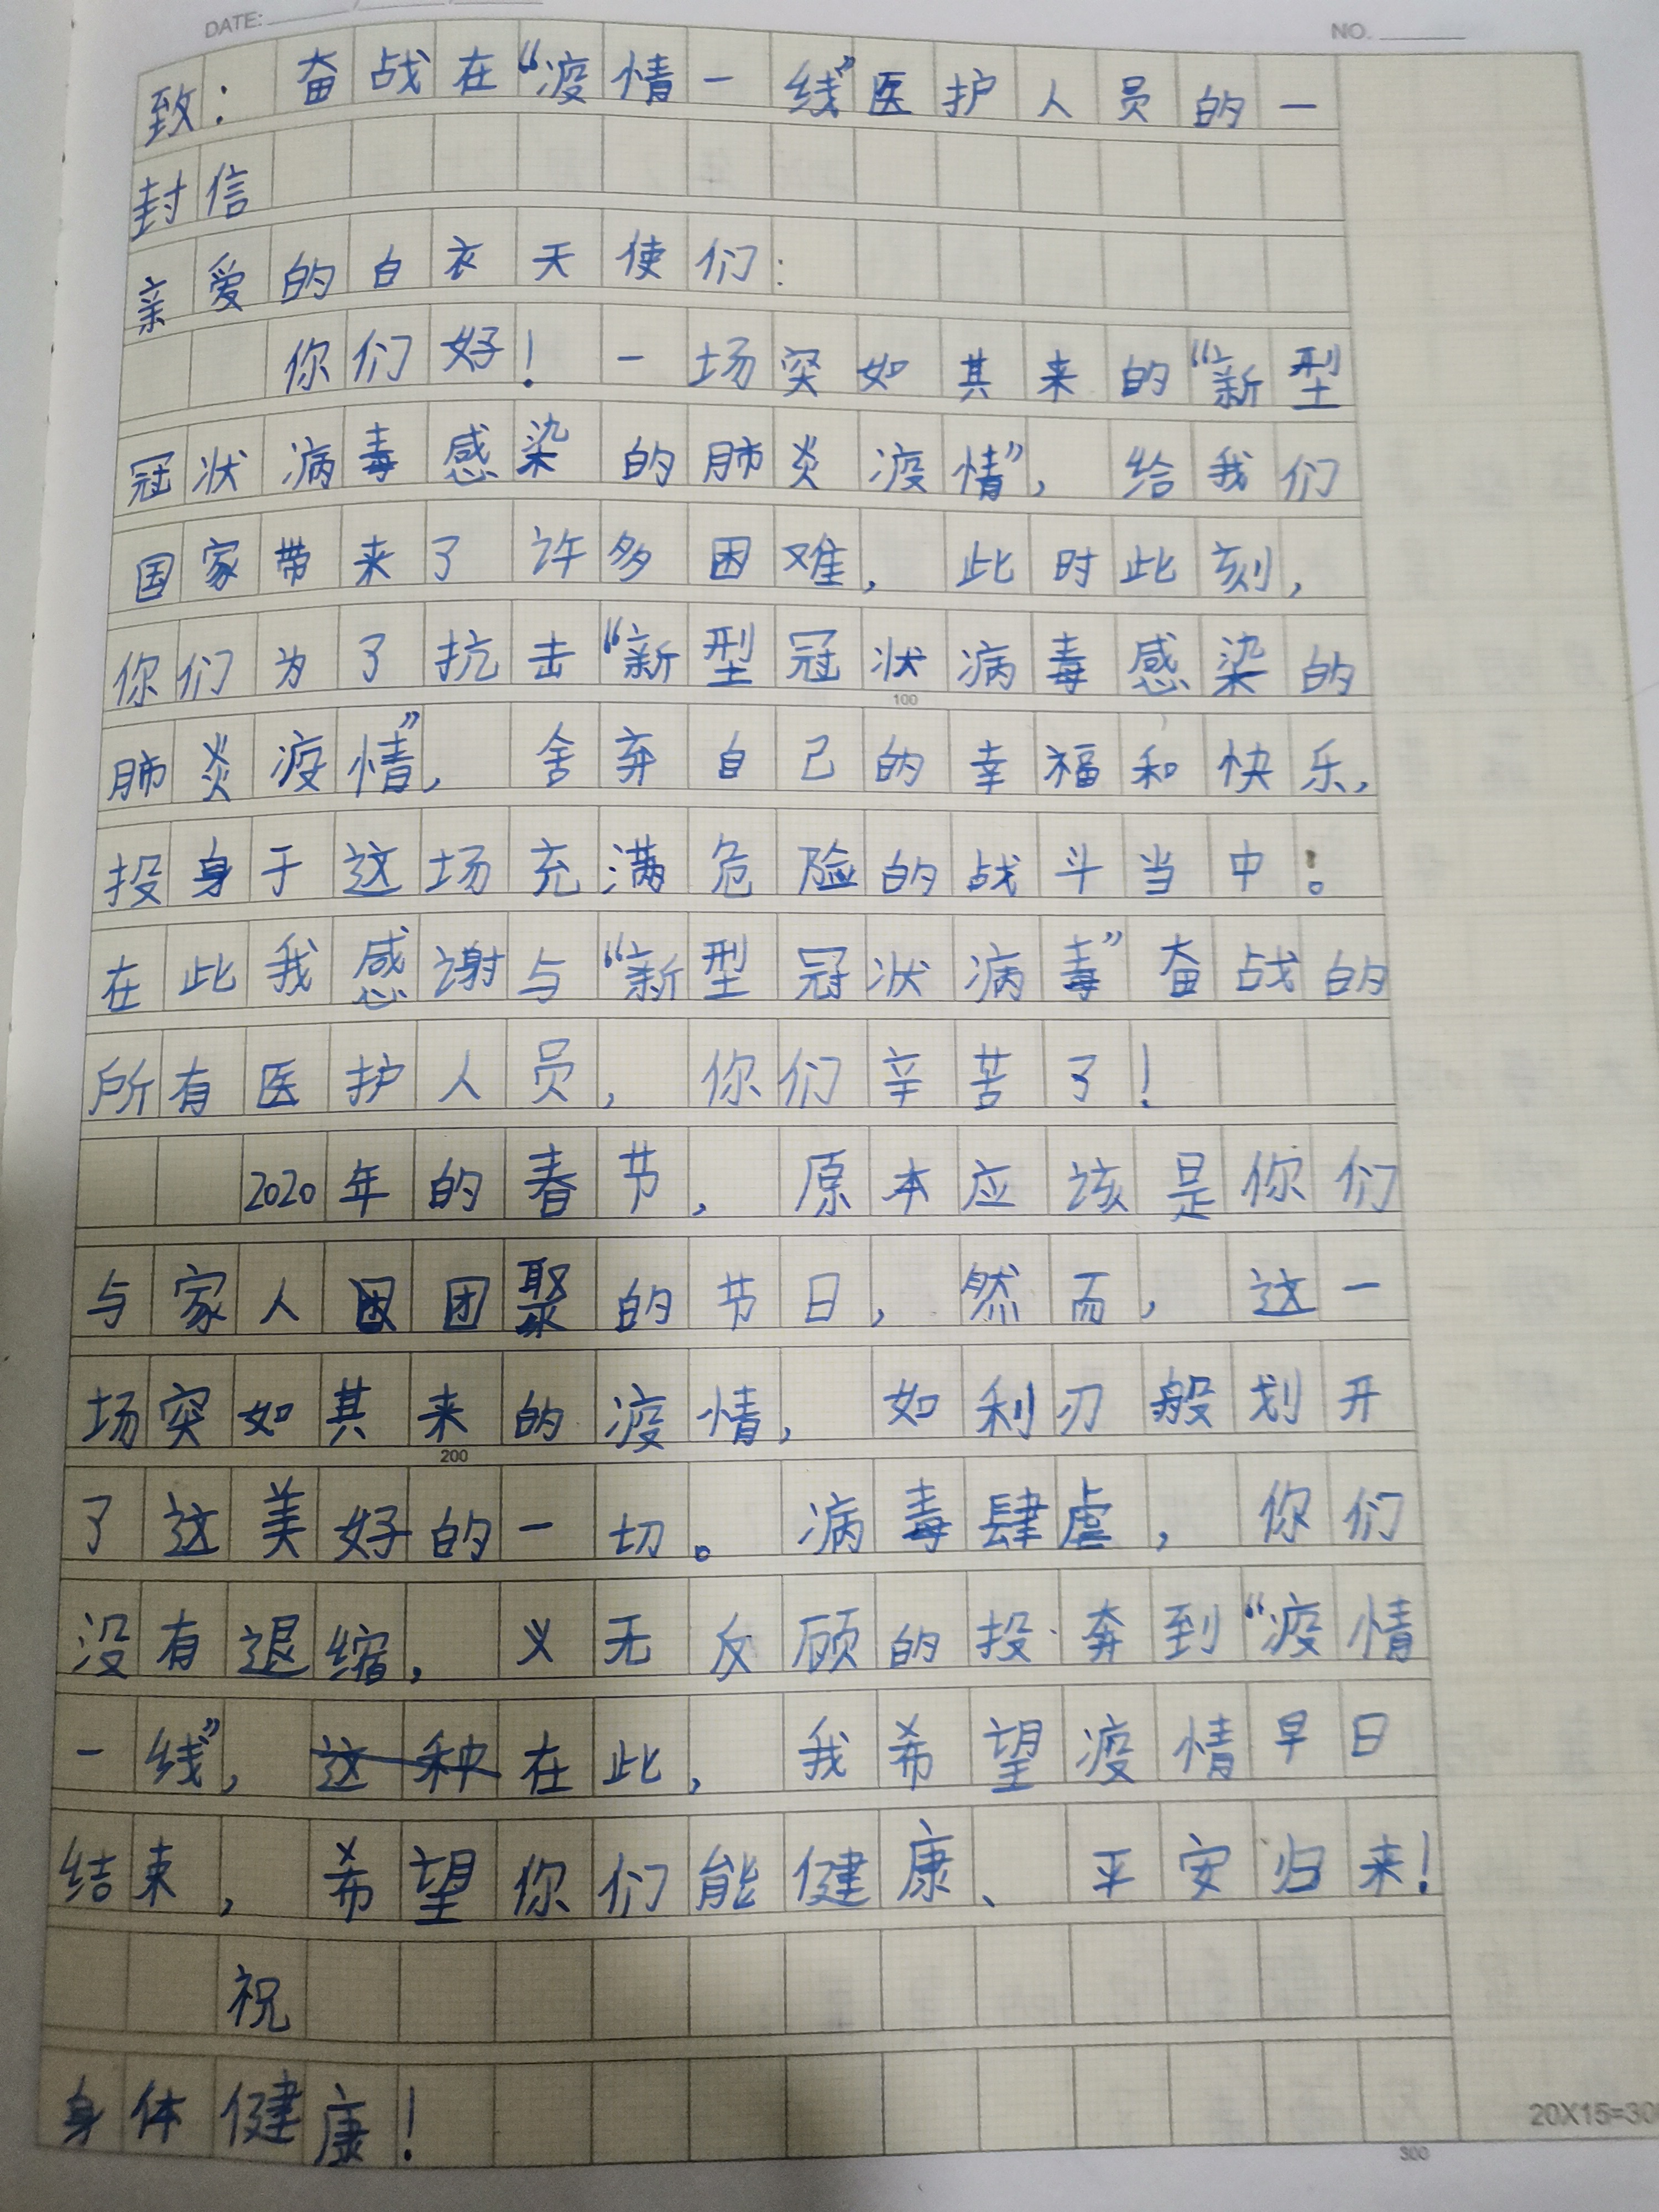 DATE: / / NO.
致：奋战在“疫情一线”医护人员的一
封信
亲爱的白衣天使们：
你们好！一场突如其来的“新型
冠状病毒感染的肺炎疫情”，给我们
国家带来了许多困难，此时此刻，
你们为了抗击“新型冠状病毒感染的
100
肺炎疫情”，舍弃自己的幸福和快乐，
投身于这场充满危险的战斗当中！。
在此我感谢与“新型冠状病毒”奋战的
所有医护人员，你们辛苦了！
2020年的春节，原本应该是你们
与家人团聚的节日，然而，这一
场突如其来的疫情，如利刃般划开
200
了这美好的一切。病毒肆虐，你们
没有退缩，义无反顾的投奔到“疫情
一线”，这种在此，我希望疫情早日
结束，希望你们能健康、平安归来！
祝
身体健康！
20X15=30
300